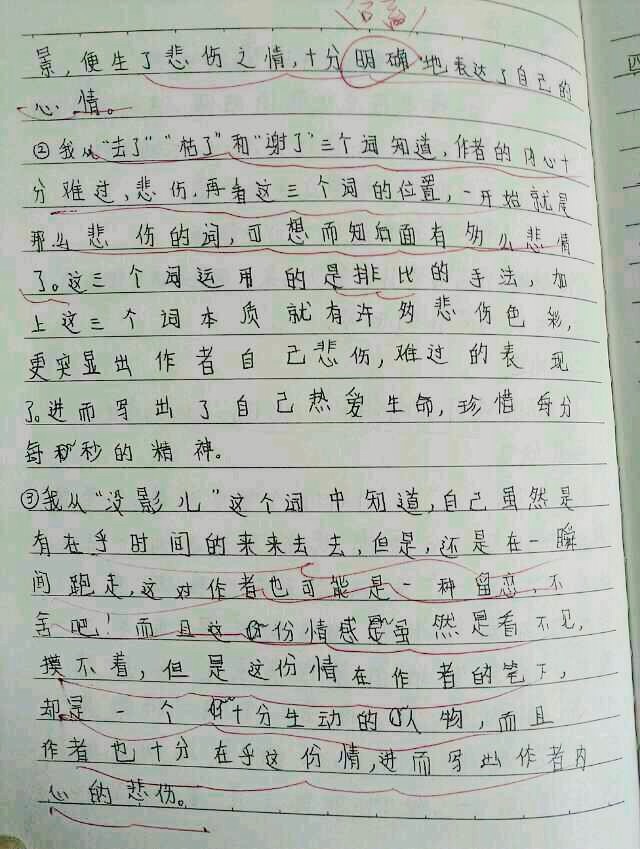 景,便生了悲伤之情,十分明确地表达了自己的
心情。
②我从“去了”“枯了”和“谢了”三个词知道,作者的内心十
分难过、悲伤.再看这三个词的位置,一开始就是
那么悲伤的词,可想而知后面有多么悲情
了。这三个词运用的是排比的手法,加
上这三个词本质就有许多悲伤色彩,
更突显出作者自己悲伤,难过的表现
了。进而写出了自己热爱生命,珍惜每分
每秒的精神。
③我从“没影儿”这个词中知道,自己虽然是
有在乎时间的来来去去,但是,还是在一瞬
间跑走,这对作者也可能是一种留恋,不
舍吧!而且这份情感虽然是看不见,
摸不着,但是这份情在作者的笔下,
却是一个十分生动的人物,而且
作者也十分在乎这份情,进而写出作者内
心的悲伤。
四